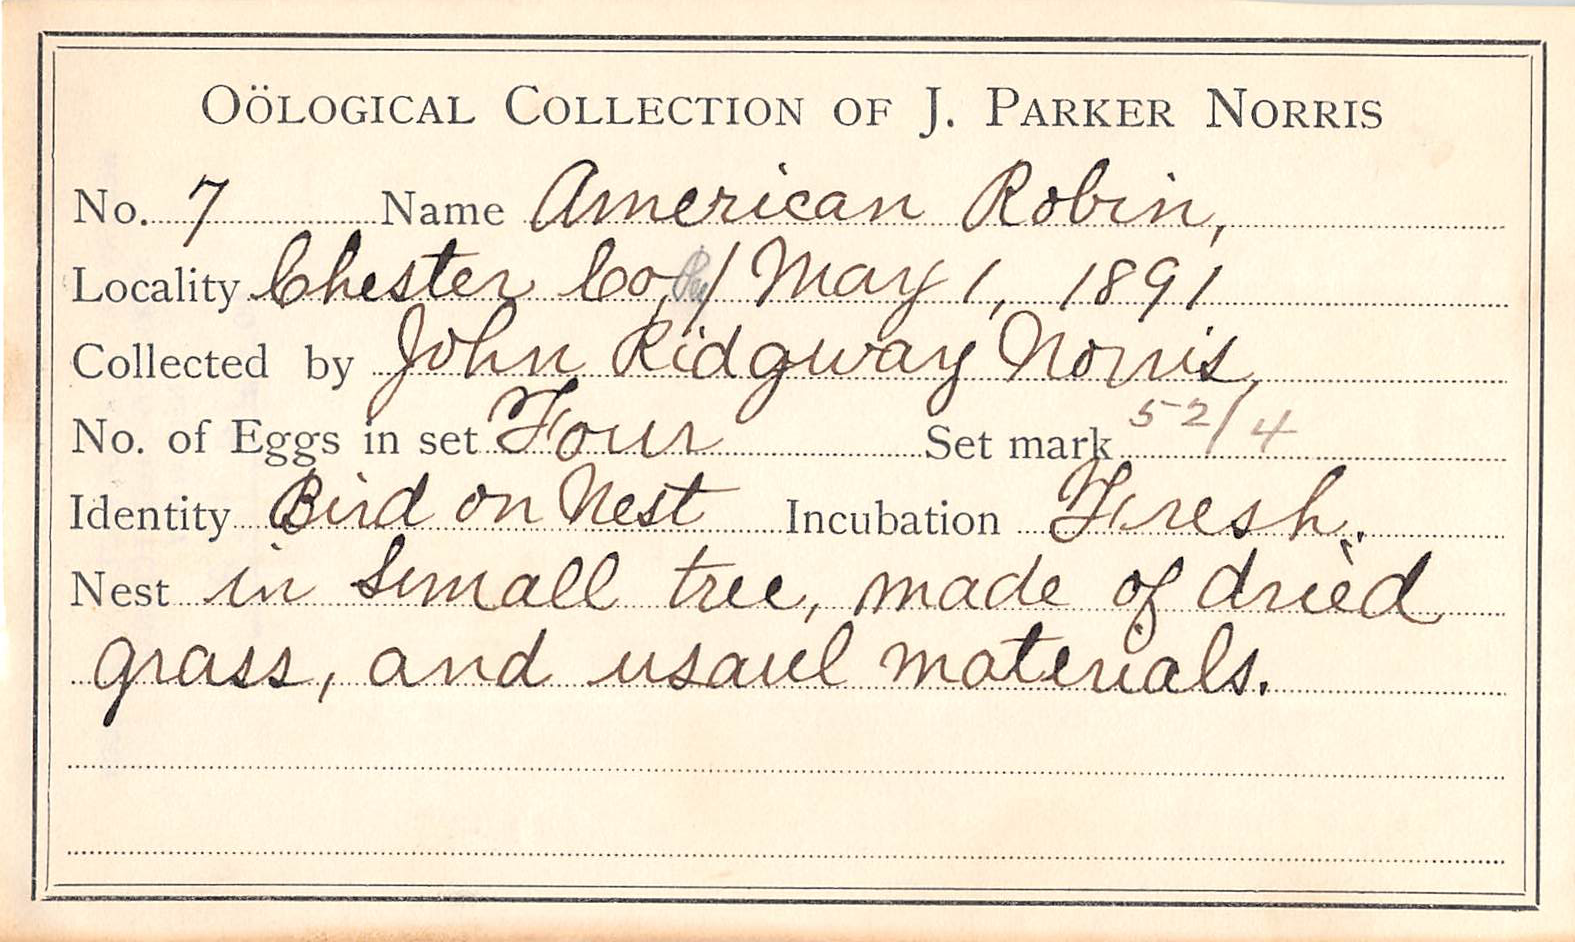 OÖLOGICAL COLLECTION OF J. PARKER NORRIS
No. 7 Name American Robin,
Locality Chester Co, / May 1, 1891
Collected by John Ridgway Norris,
No. of Eggs in set Four Set mark 52/4
Identity Bird on Nest Incubation Fresh.
Nest in small tree, made of dried
grass, and usaul materials.